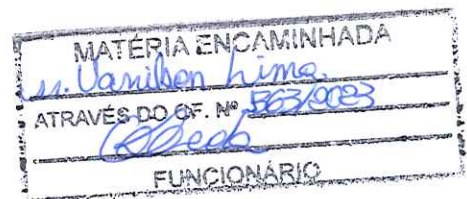 MATÉRIA ENCAMINHADA
Vanilson Lima
ATRAVÉS DO OF. Nº 563/2023
FUNCIONÁRIO